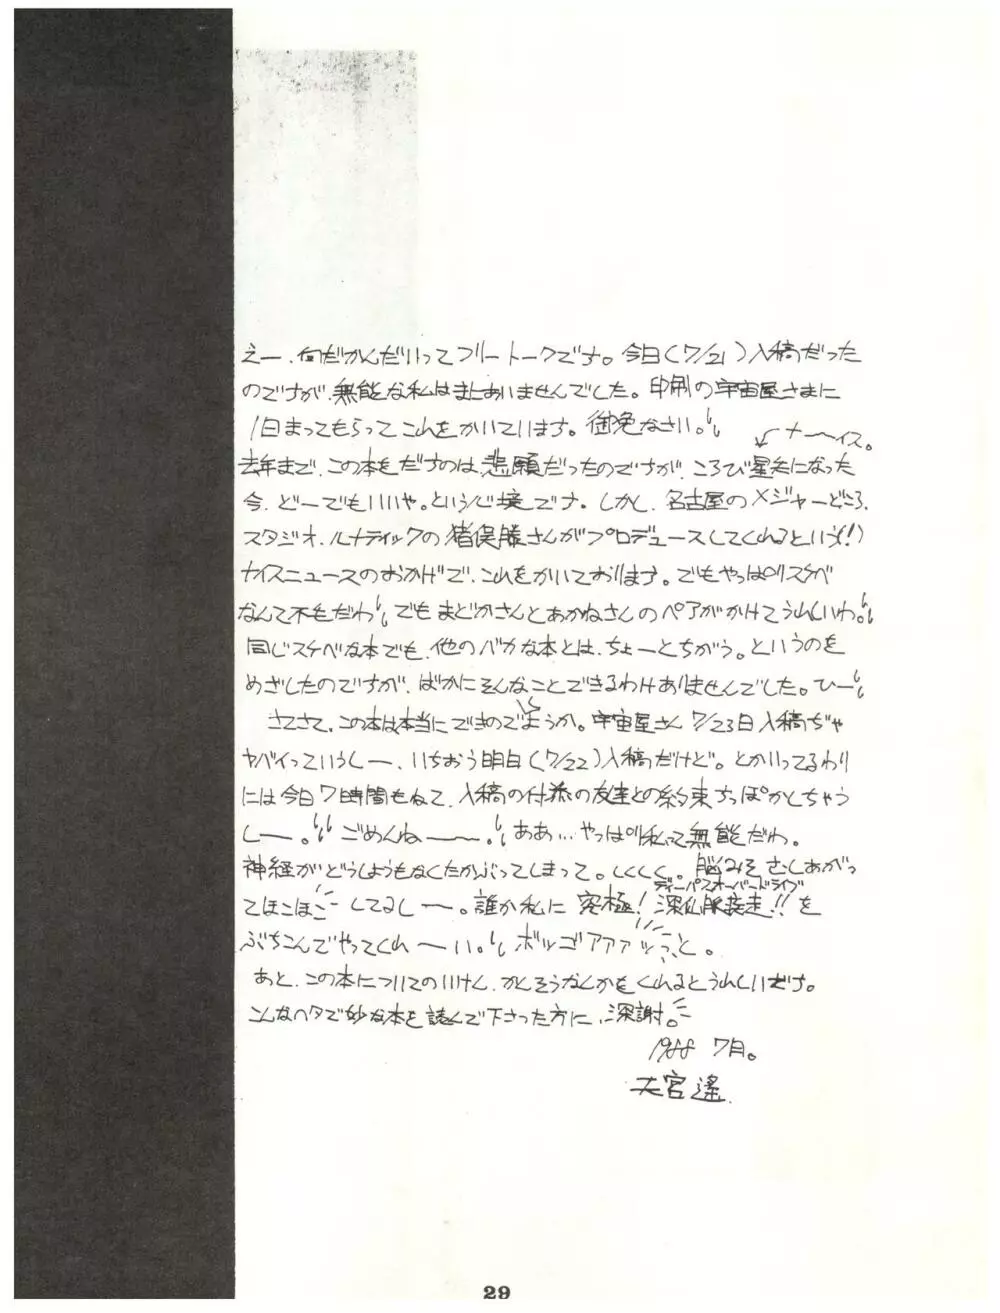 えー、何だかんだいってフリートークです。今日(7/21)入稿だった
のですが、無能な私はまにあいませんでした。印刷の宇宙屋さまに
1日まってもらってこれをかいています。御免なさい。
ナーイス。
去年まで、この本をだすのは、悲願だったのですが、ころび星矢になった
今、どーでもいいや。という心境です。しかし、名古屋のメジャーどころ、
スタジオ・ルナティックの猪俣勝さんがプロデュースしてくれるという(!)
ナイスニュースのおかげで、これをかいております。でもやっぱりスケベ
なんて不毛だわ でもまどかさんとあかねさんのペアがかけてうれしいわ。
同じスケベな本でも、他のバカな本とは、ちょーとちがう。というのを
めざしたのですが、ばかにそんなことできるわけありませんでした。ひー
さてさて、この本は本当にできるのでしょうか。宇宙屋さん7/23日入稿ぢゃ
ヤバイっていうしー、いちおう明日(7/22)入稿だけど。とかいってるわり
には今日7時間もねて、入稿の付添の友達との約束すっぽかしちゃう
しー。ごめんねー〜。ああ…やっぱり私って無能だわ。
神経がどうしようもなくたかぶってしまって。しくしく。脳みそむしあがっ
てほこほこしてるしー。誰か私に 究極!深仙脈疾走!!を
ディーパスオーバードライブ
ぶちこんでやってくれーい。ボッゴアアアッっと。
あと、この本についてのいけん、かんそうなんかをくれるとうれしいだす。
こんなヘタで妙な本を読んで下さった方に、深謝。
1988 7月。
大宮遥
29